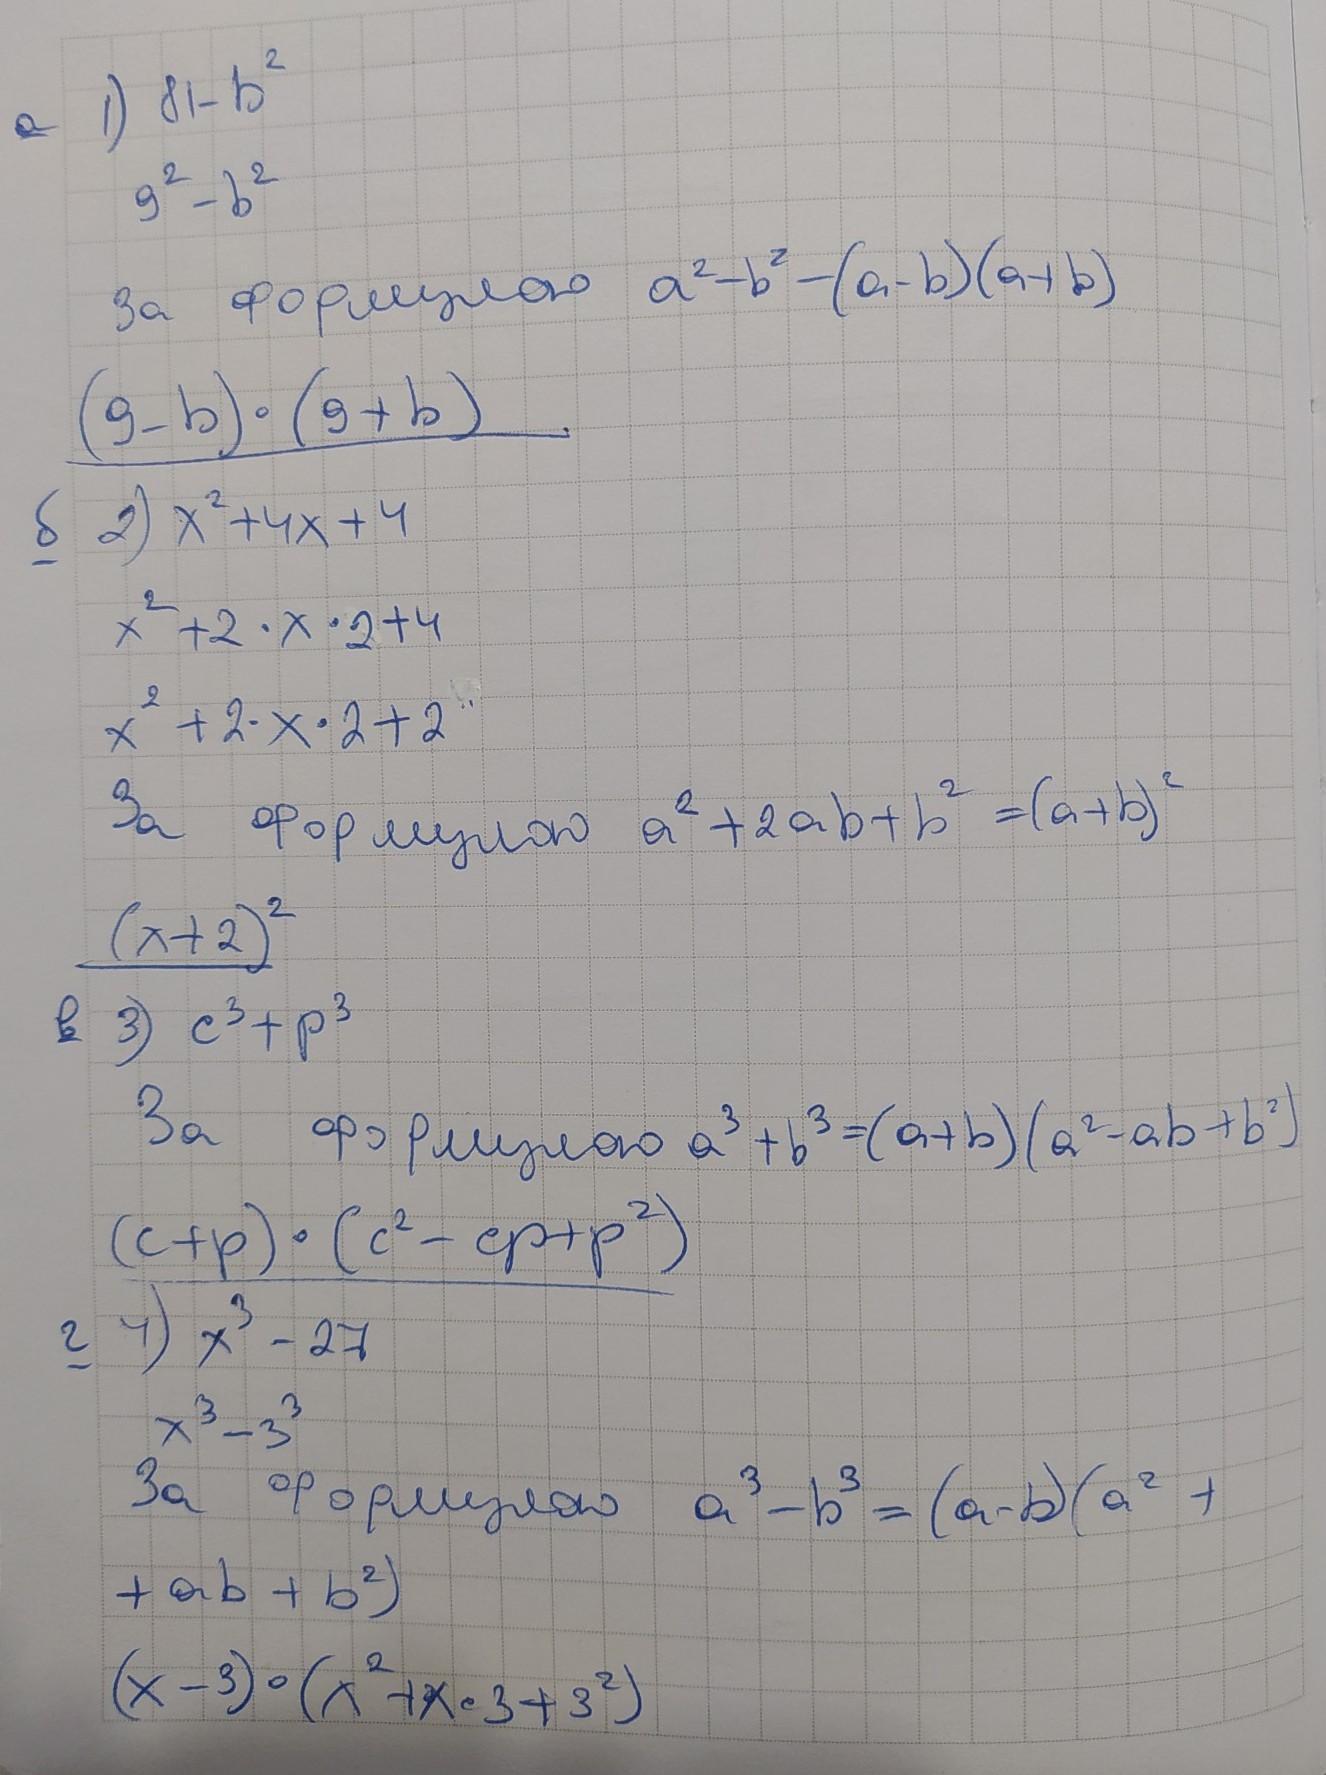 а 1) 81-b²
9²-b²
За формулою a²-b²-(a-b)(a+b)
(9-b)·(9+b)
б 2) x²+4x+4
x²+2·x·2+4
x²+2·x·2+2"
За формулою a²+2ab+b²=(a+b)²
(x+2)²
в 3) c³+p³
За формулою a³+b³=(a+b)(a²-ab+b²)
(c+p)·(c²-cp+p²)
г 4) x³-27
x³-3³
За формулою a³-b³=(a-b)(a²+
+ab+b²)
(x-3)·(x²+x·3+3²)